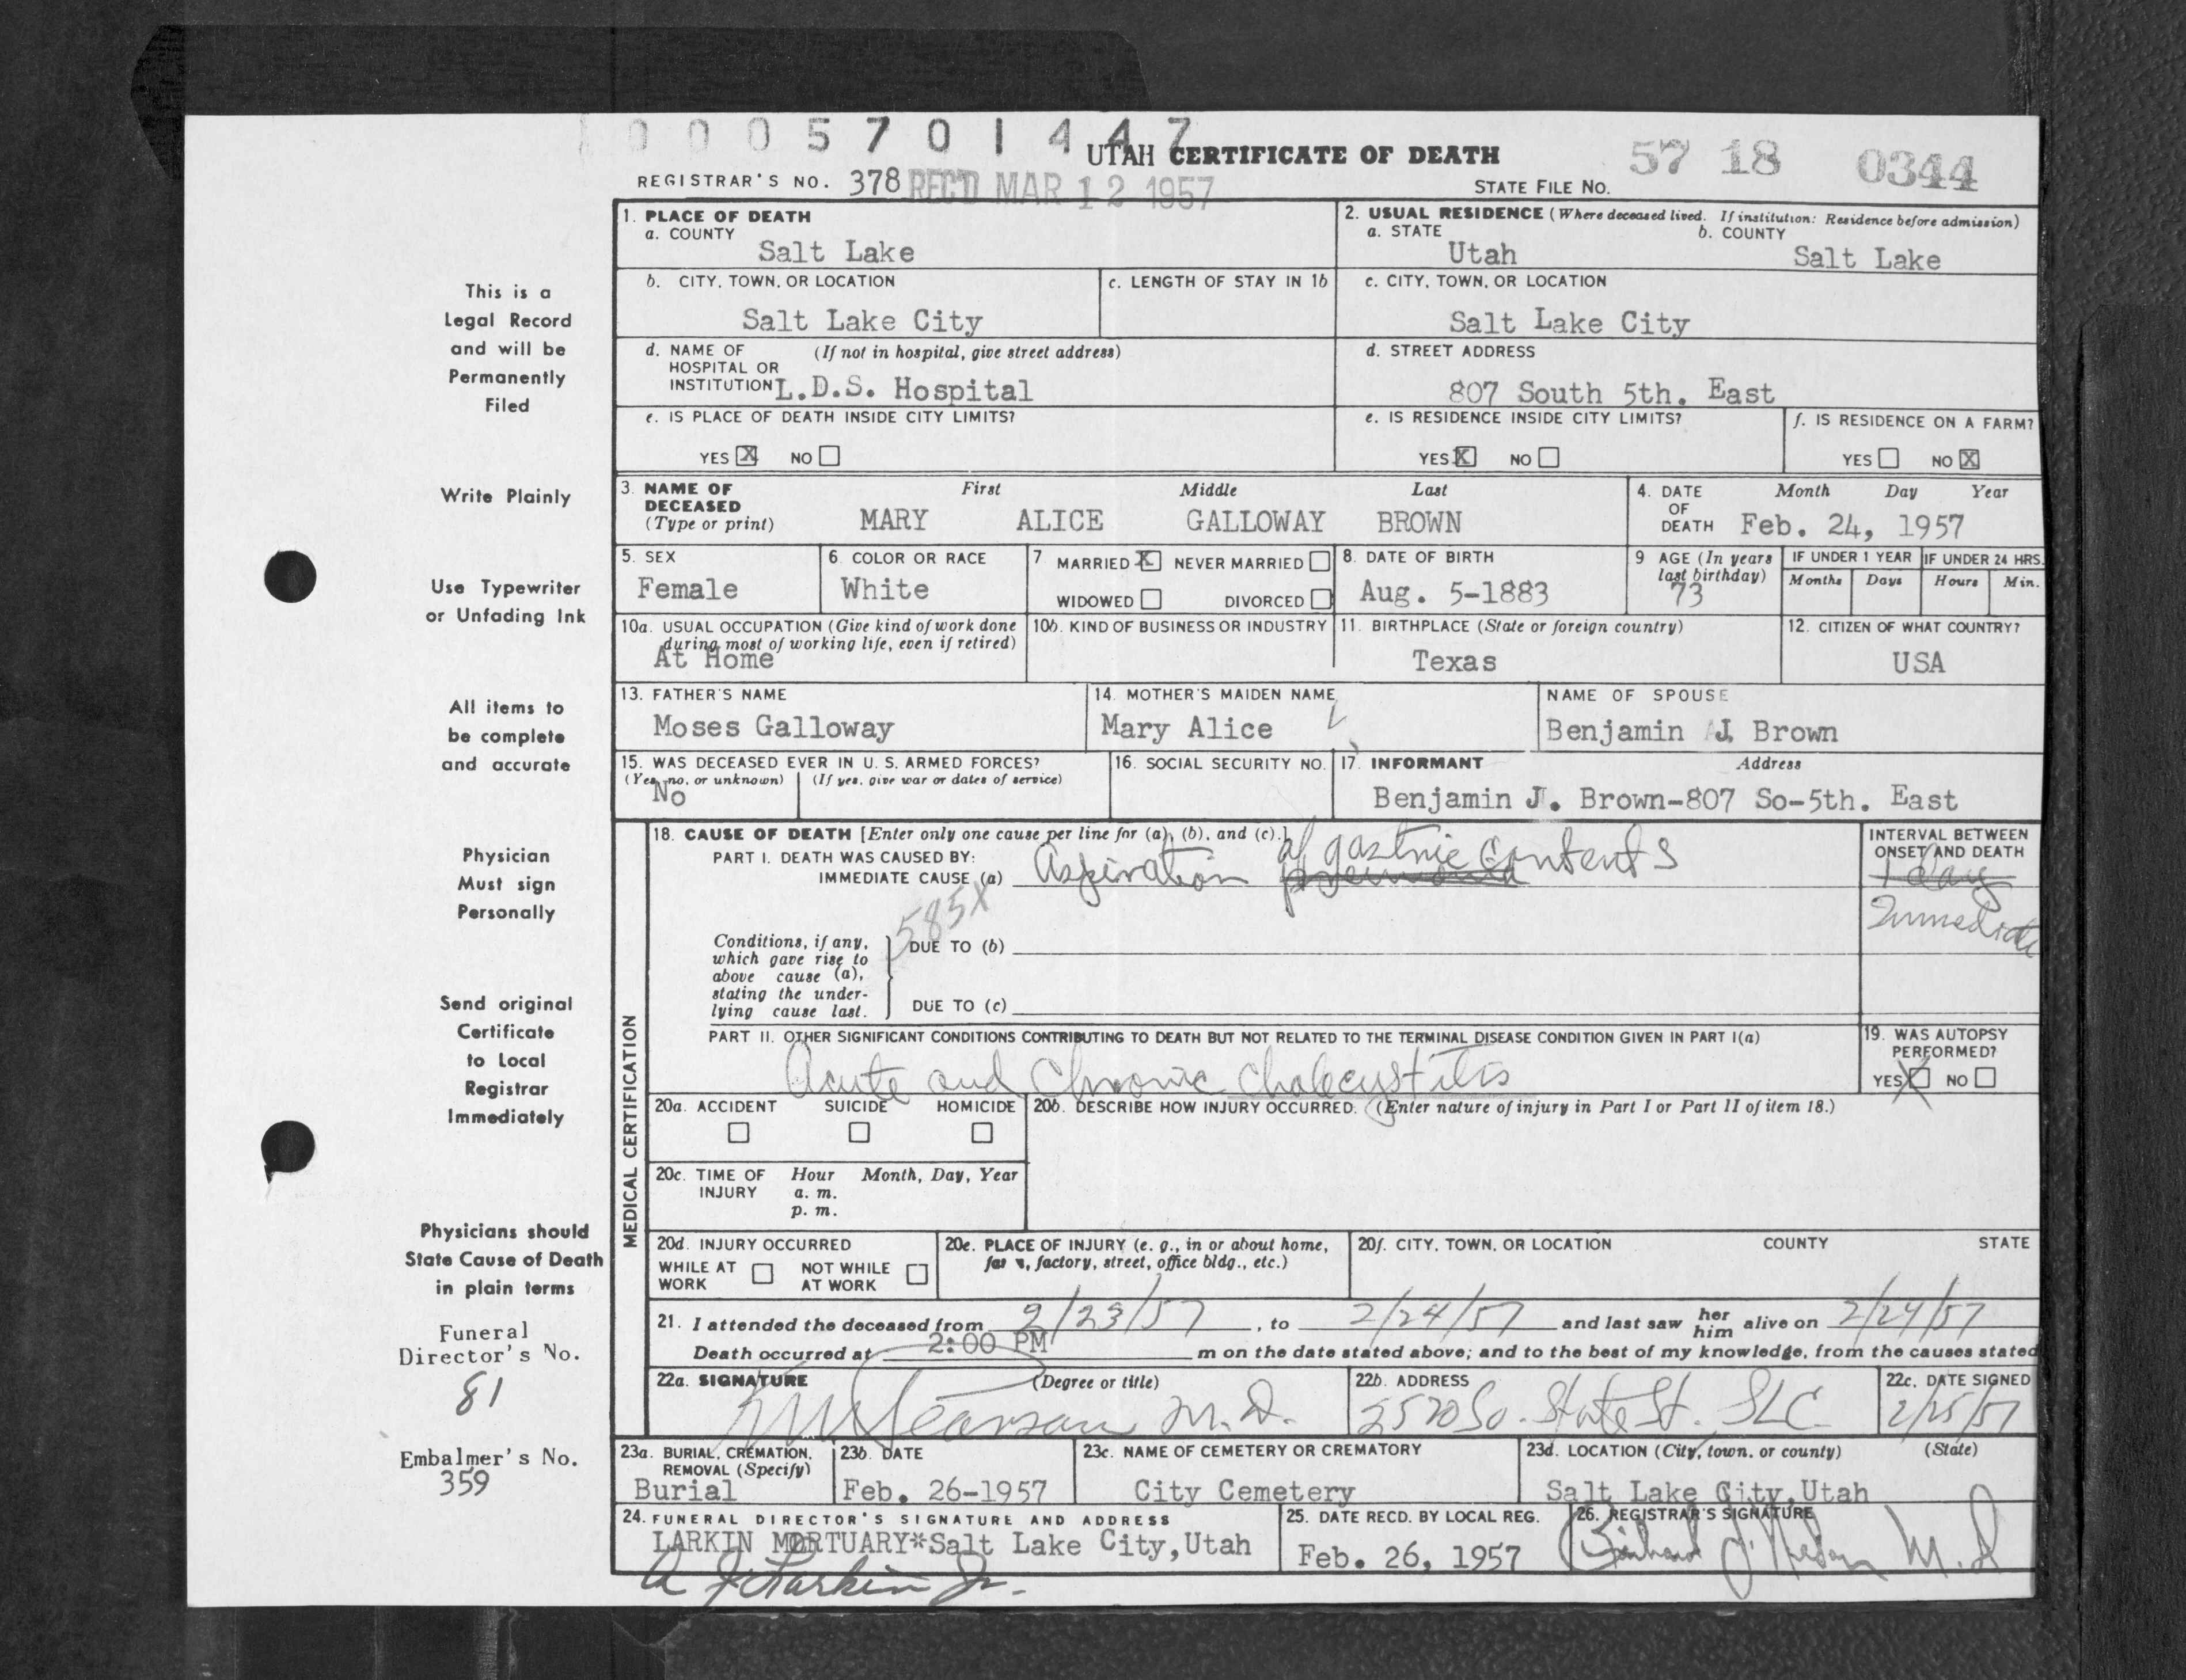 0005701447
UTAH CERTIFICATE OF DEATH
57 18 0344
REGISTRAR'S NO. 378 REC'D MAR 12 1957
STATE FILE NO.
1. PLACE OF DEATH
a. COUNTY
Salt Lake
2. USUAL RESIDENCE (Where deceased lived. If institution: Residence before admission)
a. STATE b. COUNTY
Utah Salt Lake
b. CITY, TOWN, OR LOCATION
Salt Lake City
c. LENGTH OF STAY IN 1b
c. CITY, TOWN, OR LOCATION
Salt Lake City
d. NAME OF (If not in hospital, give street address)
HOSPITAL OR
INSTITUTION L.D.S. Hospital
d. STREET ADDRESS
807 South 5th. East
e. IS PLACE OF DEATH INSIDE CITY LIMITS?
YES X NO
e. IS RESIDENCE INSIDE CITY LIMITS?
YES X NO
f. IS RESIDENCE ON A FARM?
YES NO X
3. NAME OF DECEASED (Type or print)
First Middle Last
MARY ALICE GALLOWAY BROWN
4. DATE OF DEATH
Month Day Year
Feb. 24, 1957
5. SEX
Female
6. COLOR OR RACE
White
7 MARRIED X NEVER MARRIED
WIDOWED DIVORCED
8. DATE OF BIRTH
Aug. 5-1883
9 AGE (In years last birthday)
73
IF UNDER 1 YEAR
Months Days
IF UNDER 24 HRS.
Hours Min.
10a. USUAL OCCUPATION (Give kind of work done
during most of working life, even if retired)
At Home
10b. KIND OF BUSINESS OR INDUSTRY
11. BIRTHPLACE (State or foreign country)
Texas
12. CITIZEN OF WHAT COUNTRY?
USA
13. FATHER'S NAME
Moses Galloway
14. MOTHER'S MAIDEN NAME
Mary Alice
NAME OF SPOUSE
Benjamin J. Brown
15. WAS DECEASED EVER IN U. S. ARMED FORCES?
(Yes, no, or unknown) (If yes, give war or dates of service)
No
16. SOCIAL SECURITY NO.
17. INFORMANT Address
Benjamin J. Brown-807 So-5th. East
MEDICAL CERTIFICATION
18. CAUSE OF DEATH [Enter only one cause per line for (a), (b), and (c).]
PART I. DEATH WAS CAUSED BY:
IMMEDIATE CAUSE (a) Aspiration pneumonia of gastric contents
INTERVAL BETWEEN
ONSET AND DEATH
1 day
Immediate
585X
Conditions, if any,
which gave rise to
above cause (a),
stating the under-
lying cause last.
DUE TO (b)
DUE TO (c)
PART II. OTHER SIGNIFICANT CONDITIONS CONTRIBUTING TO DEATH BUT NOT RELATED TO THE TERMINAL DISEASE CONDITION GIVEN IN PART I(a)
Acute and Chronic Cholecystitis
19. WAS AUTOPSY
PERFORMED?
YES X NO
20a. ACCIDENT SUICIDE HOMICIDE
20b. DESCRIBE HOW INJURY OCCURRED. (Enter nature of injury in Part I or Part II of item 18.)
20c. TIME OF INJURY
Hour Month, Day, Year
a. m.
p. m.
20d. INJURY OCCURRED
WHILE AT WORK NOT WHILE AT WORK
20e. PLACE OF INJURY (e. g., in or about home,
farm, factory, street, office bldg., etc.)
20f. CITY, TOWN, OR LOCATION COUNTY STATE
21. I attended the deceased from 2/23/57, to 2/24/57 and last saw her him alive on 2/24/57
Death occurred at 2:00 PM m on the date stated above; and to the best of my knowledge, from the causes stated
22a. SIGNATURE (Degree or title)
M.D.
22b. ADDRESS
2520 So. State St. SLC
22c. DATE SIGNED
2/25/57
23a. BURIAL, CREMATION,
REMOVAL (Specify)
Burial
23b. DATE
Feb. 26-1957
23c. NAME OF CEMETERY OR CREMATORY
City Cemetery
23d. LOCATION (City, town, or county) (State)
Salt Lake City,Utah
24. FUNERAL DIRECTOR'S SIGNATURE AND ADDRESS
LARKIN MORTUARY*Salt Lake City,Utah
A J Larkin Jr.
25. DATE RECD. BY LOCAL REG.
Feb. 26, 1957
26. REGISTRAR'S SIGNATURE
M.D
This is a
Legal Record
and will be
Permanently
Filed
Write Plainly
Use Typewriter
or Unfading Ink
All items to
be complete
and accurate
Physician
Must sign
Personally
Send original
Certificate
to Local
Registrar
Immediately
Physicians should
State Cause of Death
in plain terms
Funeral
Director's No.
81
Embalmer's No.
359